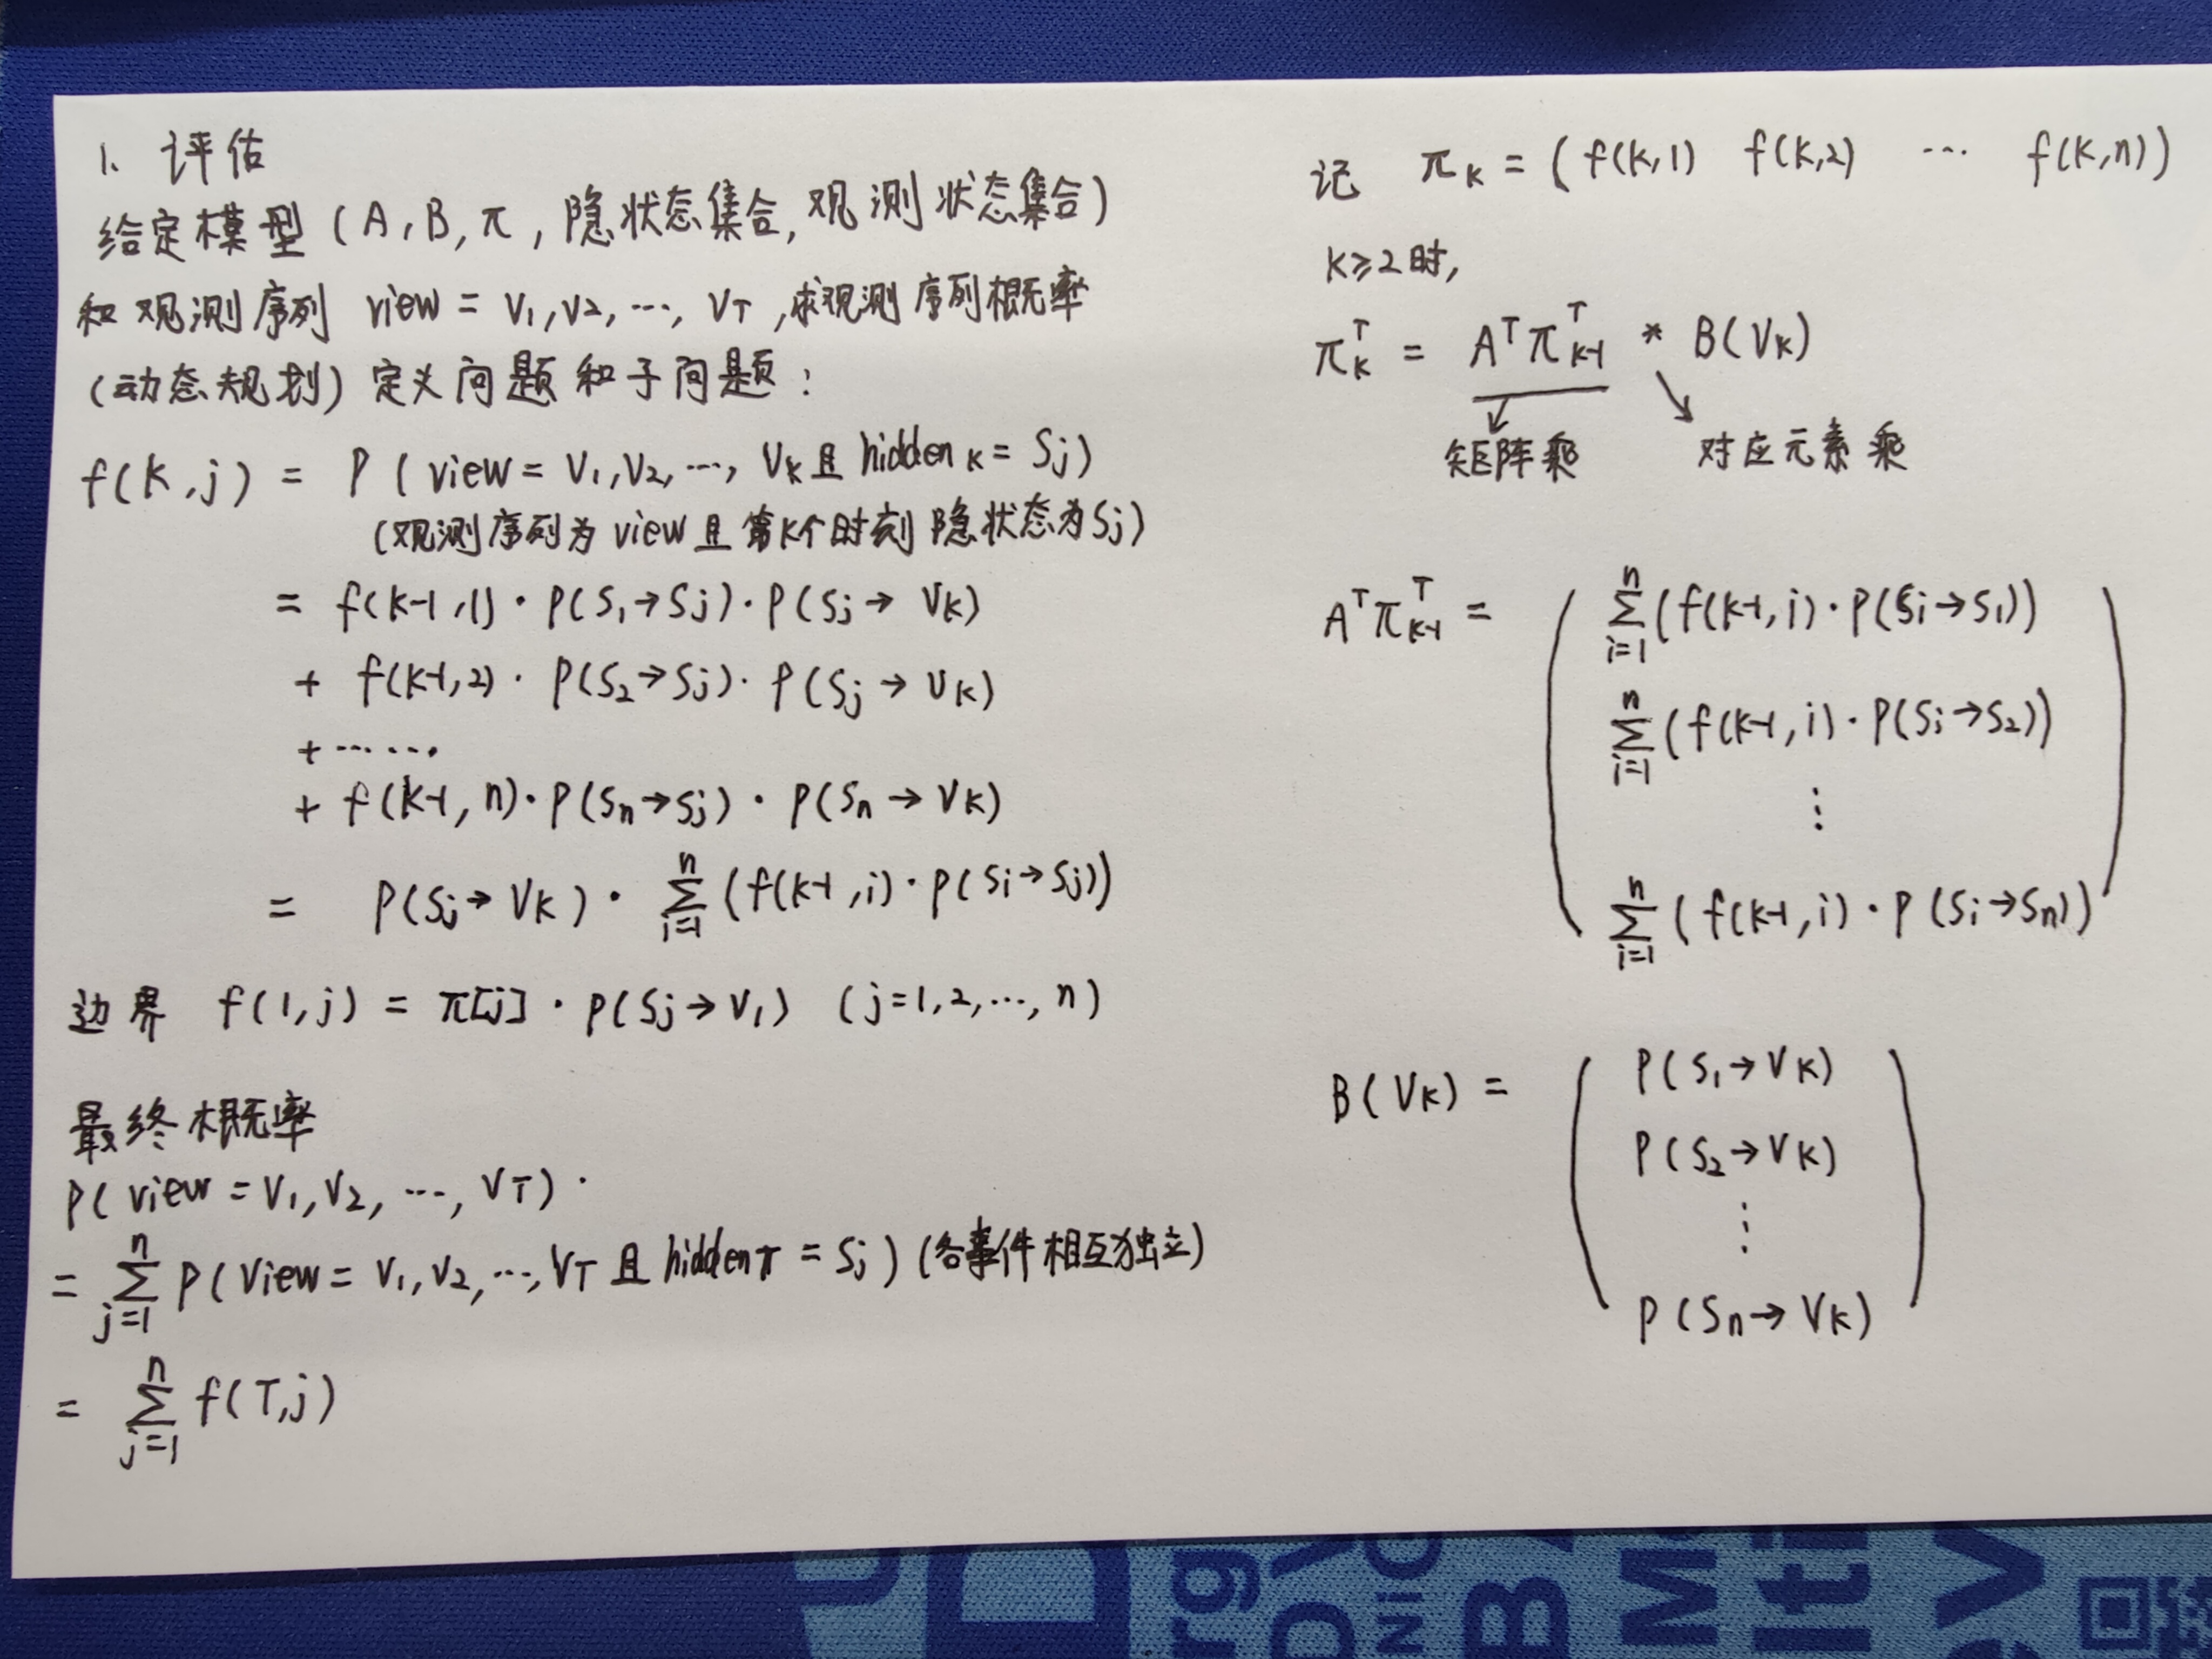 1. 评估
给定模型 (A, B, π, 隐状态集合, 观测状态集合)
和观测序列 view = V₁, V₂, …, V_T, 求观测序列概率
(动态规划) 定义问题和子问题:
f(k, j) = P(view = V₁, V₂, …, V_k 且 hidden_k = S_j)
(观测序列为view且第k个时刻隐状态为S_j)
= f(k-1, 1)·P(S₁→S_j)·P(S_j→V_k)
+ f(k-1, 2)·P(S₂→S_j)·P(S_j→V_k)
+ ……
+ f(k-1, n)·P(S_n→S_j)·P(S_n→V_k)
= P(S_j→V_k)·∑_{i=1}^{n}(f(k-1, i)·P(S_i→S_j))
边界 f(1, j) = π[j]·P(S_j→V₁) (j=1, 2, …, n)
最终概率
P(view = V₁, V₂, …, V_T)
= ∑_{j=1}^{n} P(view = V₁, V₂, …, V_T 且 hidden_T = S_j) (各事件相互独立)
= ∑_{j=1}^{n} f(T, j)
记 π_k = (f(k,1) f(k,2) … f(k,n))
k≥2时,
π_k^T = A^T π_{k-1}^T * B(V_k)
矩阵乘 对应元素乘
A^T π_{k-1}^T = ( ∑_{i=1}^{n}(f(k-1, i)·P(S_i→S₁))
∑_{i=1}^{n}(f(k-1, i)·P(S_i→S₂))
⋮
∑_{i=1}^{n}(f(k-1, i)·P(S_i→S_n)) )
B(V_k) = ( P(S₁→V_k)
P(S₂→V_k)
⋮
P(S_n→V_k) )